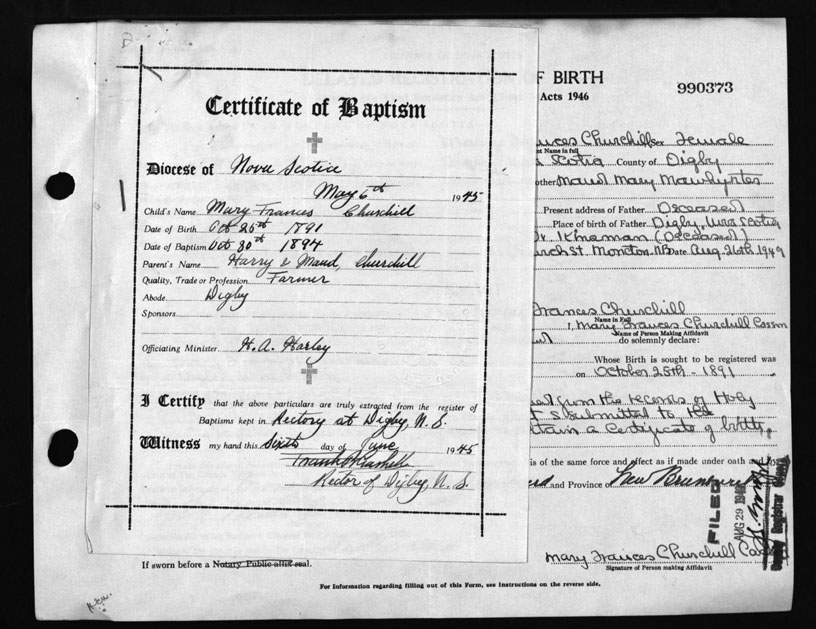 Certificate of Baptism
Diocese of Nova Scotia
May 6th 1945
Child's Name Mary Frances Churchill
Date of Birth Oct 25th 1891
Date of Baptism Oct 30th 1894
Parent's Name Harry & Maud, Churchill
Quality, Trade or Profession Farmer
Abode Digby
Sponsors
Officiating Minister H. A. Harley
I Certify that the above particulars are truly extracted from the register of
Baptisms kept in Rectory at Digby, N. S.
Witness my hand this Sixth day of June 1945
Rector of Digby, N. S.
OF BIRTH
Acts 1946
990373
nces Churchill Sex Female
nt Name in full
Scotia County of Digby
other Maud Mary Mawhynter
Present address of Father Deceased
Place of birth of Father Digby, Nova Scotia
Kinsman (Deceased)
urch St. Moncton. NB Date Aug. 26th 1949
Frances Churchill
Name in Full
I, Mary Frances Churchill Casson
Name of Person Making Affidavit
do solemnly declare:
Whose Birth is sought to be registered was
on October 25th - 1891
from the records of Holy
submitted to the
tain a certificate of birth,
is of the same force and effect as if made under oath and
and Province of New Brunswick
FILED
AUG 29
Deputy Registrar General
Mary Frances Churchill
Signature of Person making Affidavit
If sworn before a Notary Public affix seal.
For Information regarding filling out of this Form, see Instructions on the reverse side.